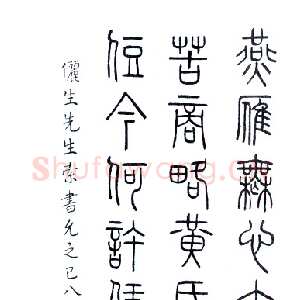 燕雁無心太
苦商略黃昏
住今何許憑
儷生先生書允之已八
Shufawang.cn